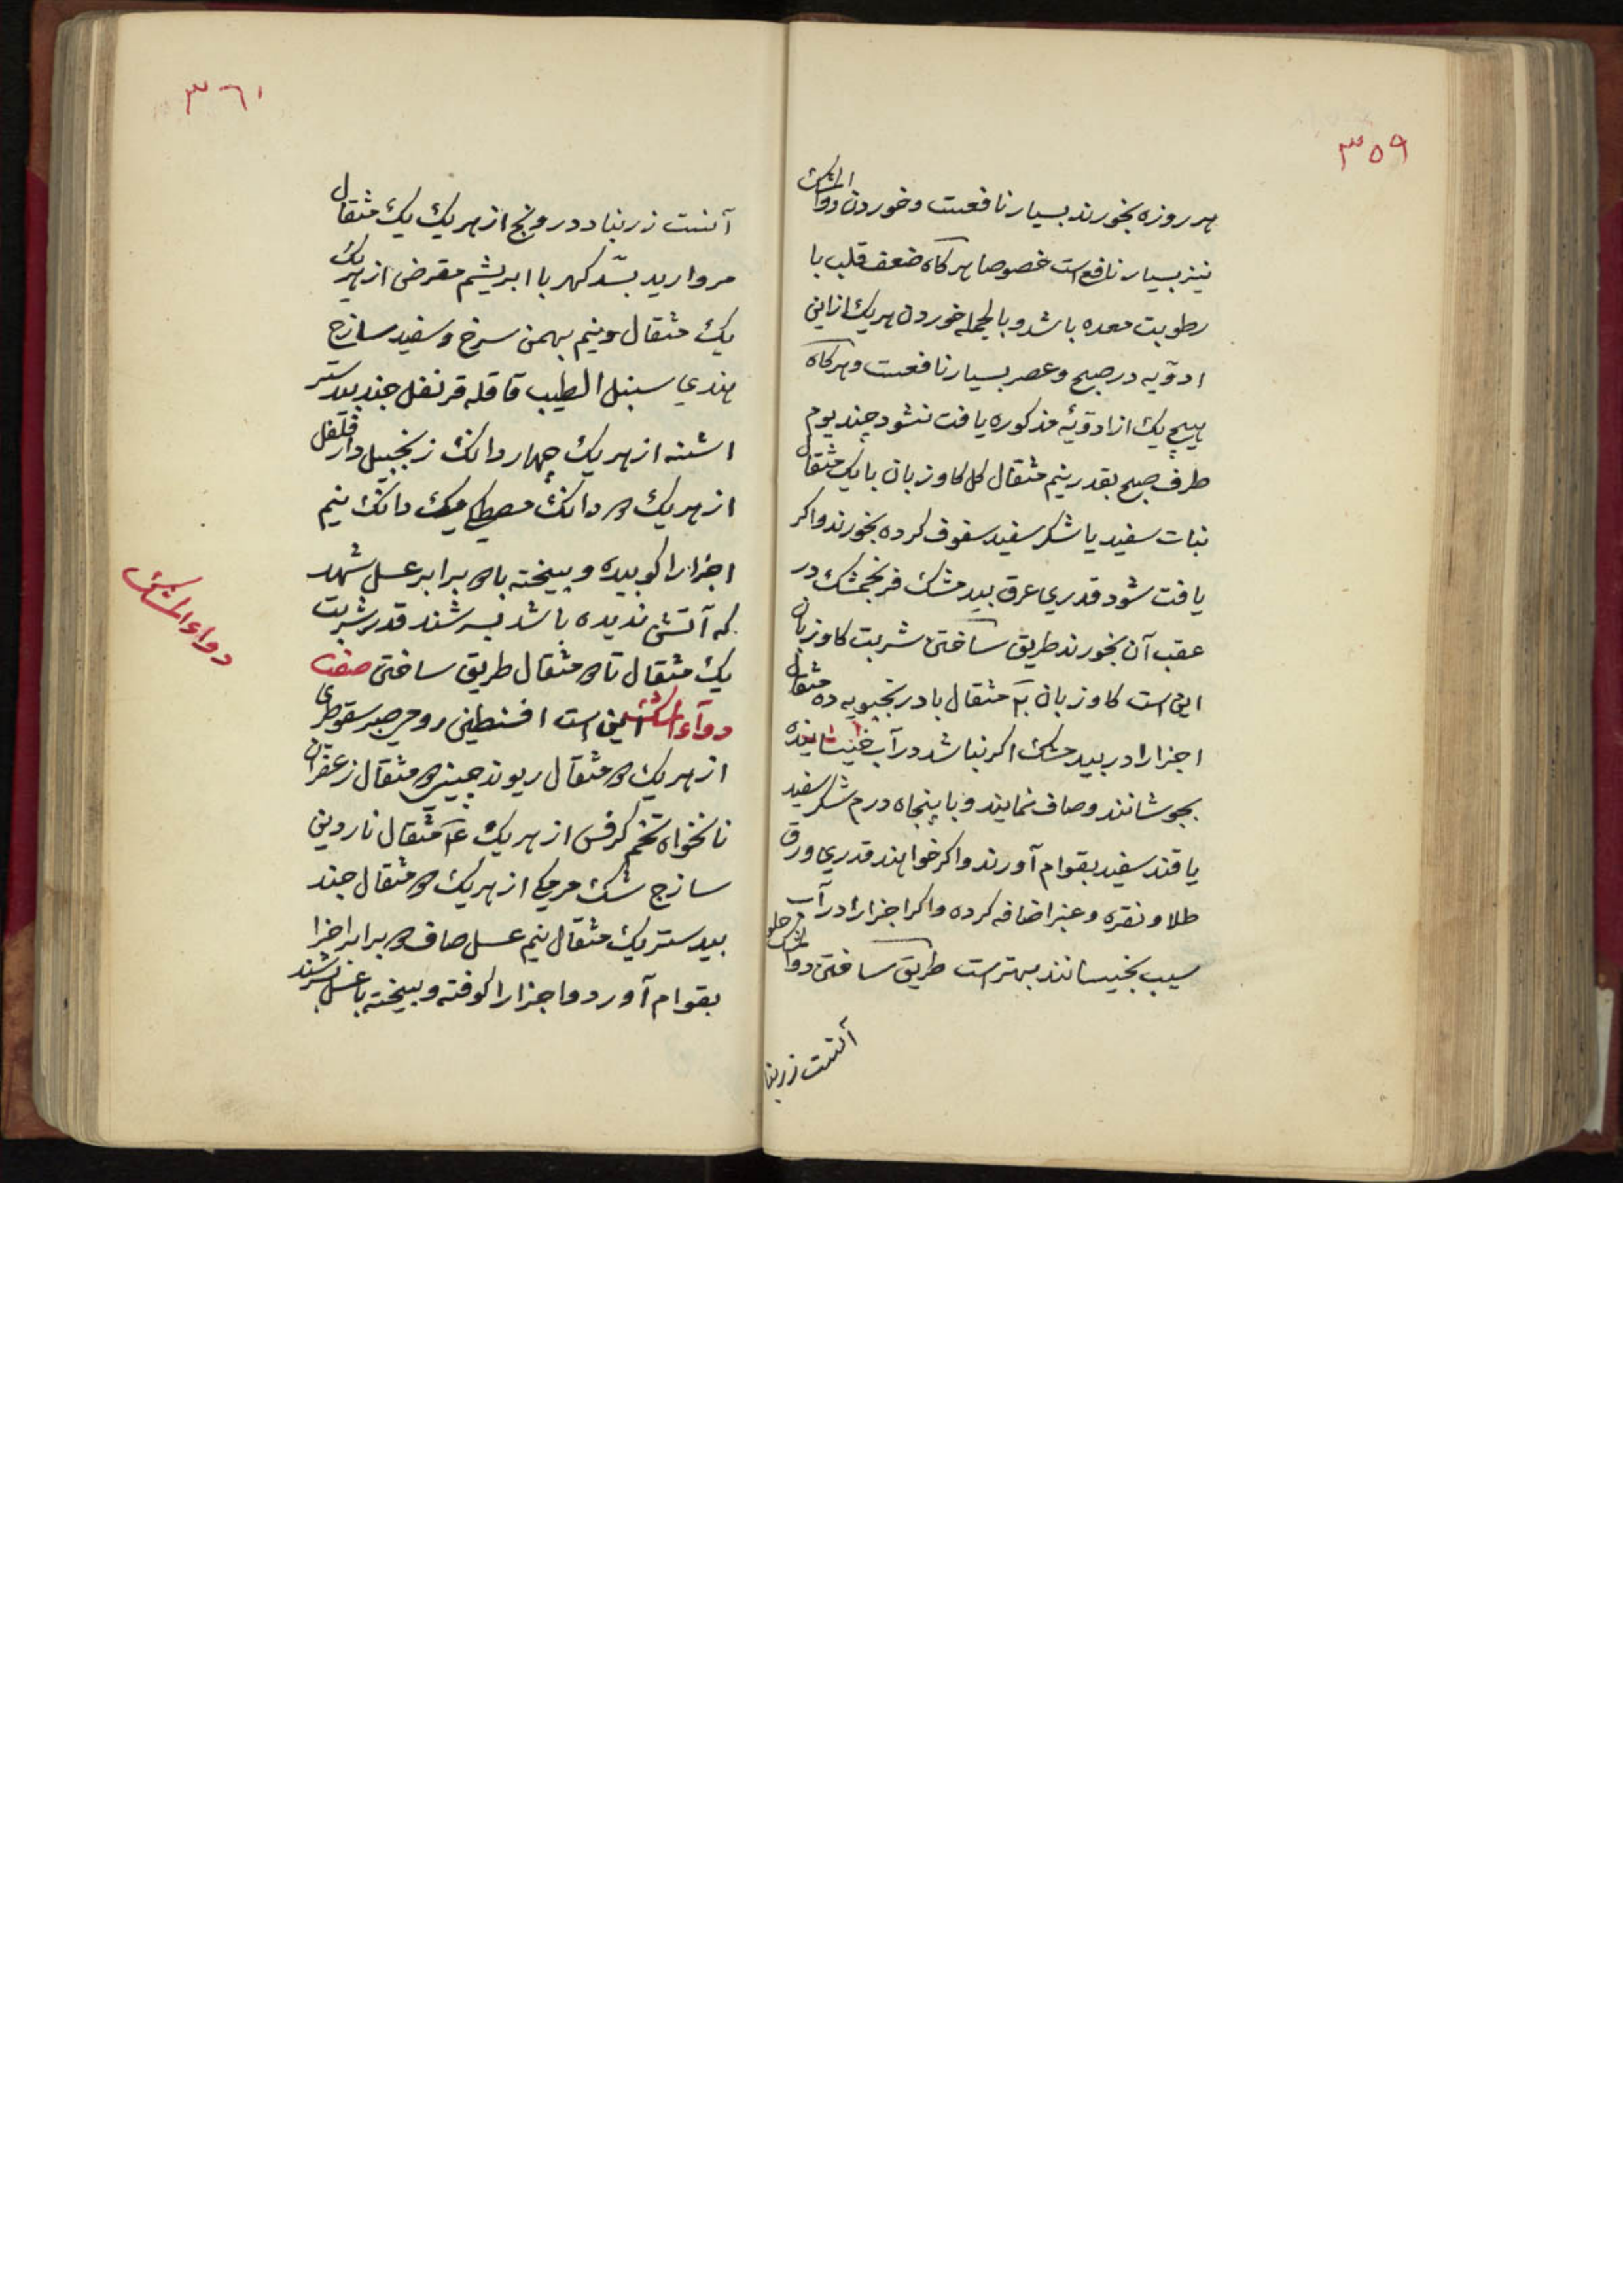 ٣٥٩
هر روزه بخورند بسیار نافعست و خوردن دواء المشک
نیز بسیار نافع است خصوصا هرکاه ضعف قلب با
رطوبت معده باشد و بالجمله خوردن هریک از این
ادویه در صبح و عصر بسیار نافعست و هرکاه
هیچ یک از ادویهٔ مذکوره یافت نشود چند یوم
طرف صبح بقدر نیم مثقال کل کاوزبان با یک مثقال
نبات سفید یا شکر سفید سفوف کرده بخورند و اکر
یافت شود قدری عرق بید مشک فرنجمشک در
عقب آن بخورند طریق ساختن شربت کاوزبان
این است کاوزبان مثقال بادرنجبویه ده مثقال
اجزا را در بید مشک اکر نباشد در آب خیسانیده
بجوشانند و صاف نمایند و با پنجاه درم شکر سفید
یا قند سفید بقوام آورند و اکر خواهند قدری ورق
طلا و نقره و عنبر اضافه کرده و اکر اجزا را در آب
سیب بخیسانند بهتر است طریق ساختن دواء المشک حلو
آنست زرنبا
٣٦١
آنست زرنباد درونج از هریک یک مثقال
مروارید بسّد کهربا ابریشم مقرض از هریک
یک مثقال و نیم بهمن سرخ و سفید ساذج
هندی سنبل الطیب قاقله قرنفل جند بیدستر
اشنه از هریک چهار دانک زنجبیل دارفلفل
از هریک دانک مصطکی یک دانک نیم
اجزا را کوبیده و بیخته با برابر عسل شهد
که آتش ندیده باشد بسرشند قدر شربت
یک مثقال تا مثقال طریق ساختن صفت
دوآء المشک این است افسنطین رومی صبر سقوطری
از هریک مثقال ریوند چینی مثقال زعفران
نانخواه تخم کرفس از هریک مثقال ناردین
ساذج مشک مرمکی از هریک مثقال جند
بیدستر یک مثقال نیم عسل صاف برابر اجزا
بقوام آورد و اجزا را کوفته و بیخته با عسل بسرشند
دواء المشک